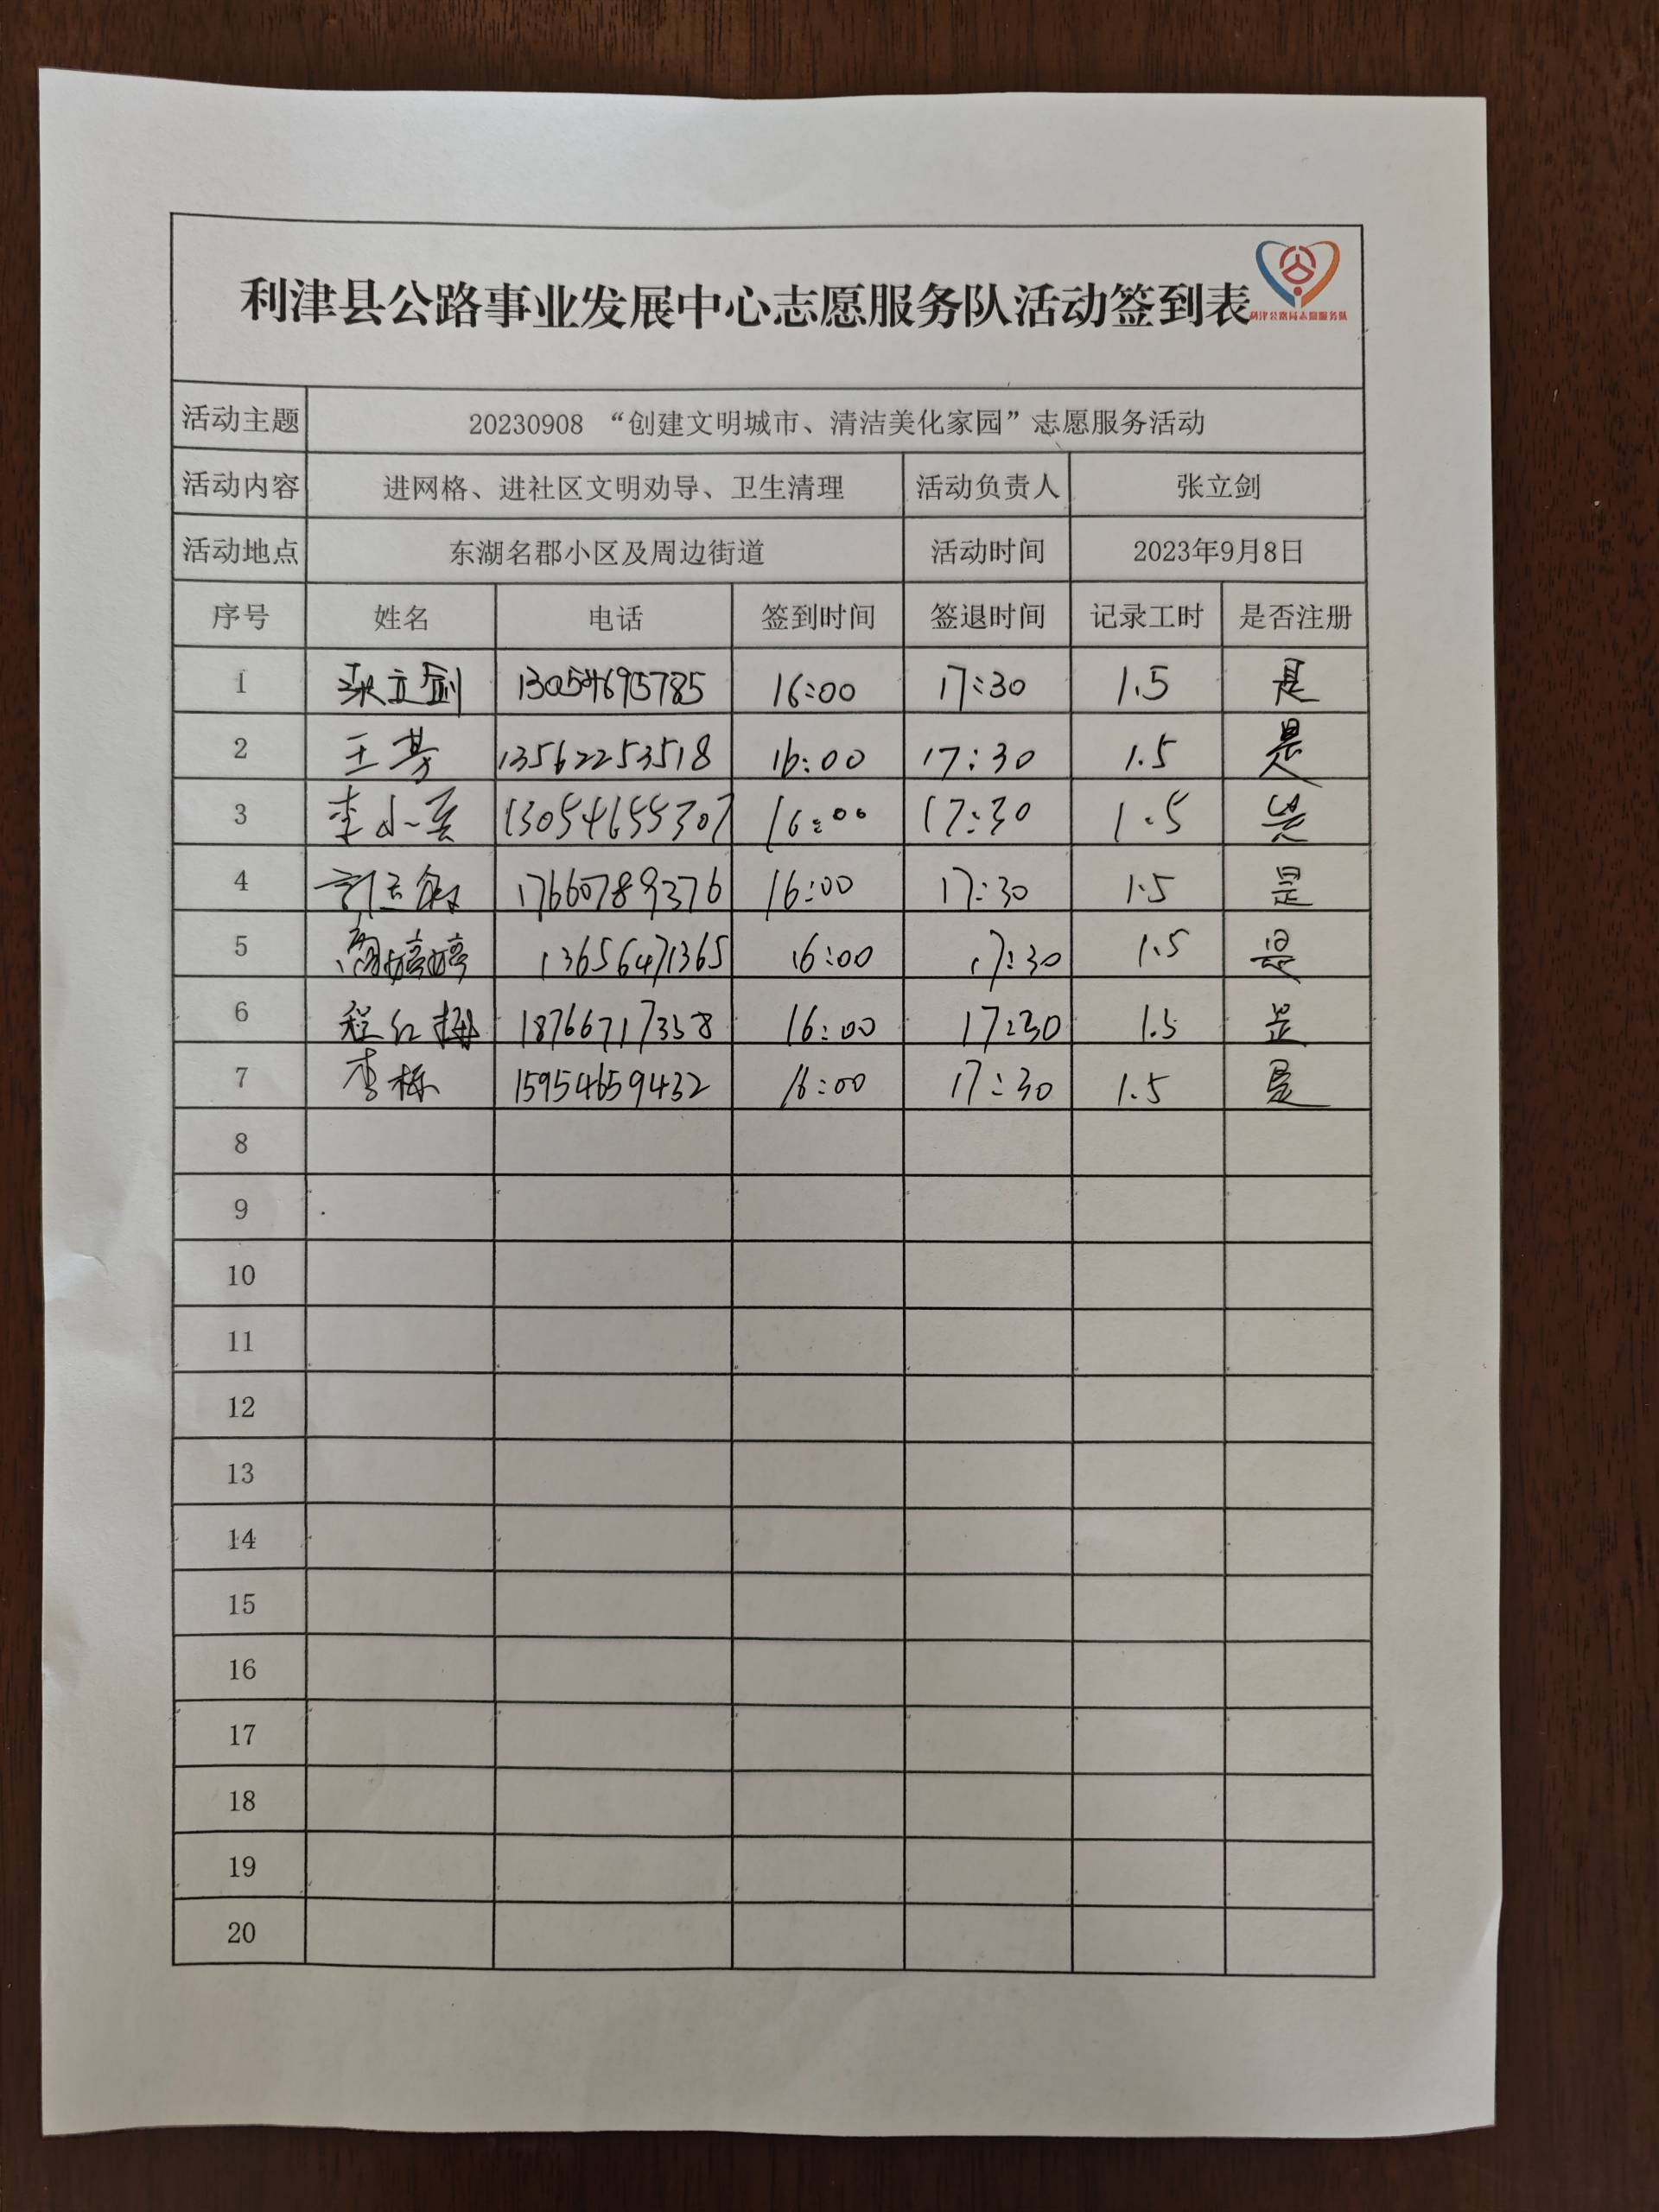 利津县公路事业发展中心志愿服务队活动签到表
利津公路局志愿服务队
活动主题 20230908 “创建文明城市、清洁美化家园”志愿服务活动
活动内容 进网格、进社区文明劝导、卫生清理 活动负责人 张立剑
活动地点 东湖名郡小区及周边街道 活动时间 2023年9月8日
序号 姓名 电话 签到时间 签退时间 记录工时 是否注册
1 张立剑 13054695785 16:00 17:30 1.5 是
2 王芳 13562253518 16:00 17:30 1.5 是
3 李小 13054655307 16:00 17:30 1.5 是
4 17660789376 16:00 17:30 1.5 是
5 周婷婷 13656471365 16:00 17:30 1.5 是
6 程红梅 18766717358 16:00 17:30 1.5 是
7 李栋 15954659432 16:00 17:30 1.5 是
8
9
10
11
12
13
14
15
16
17
18
19
20